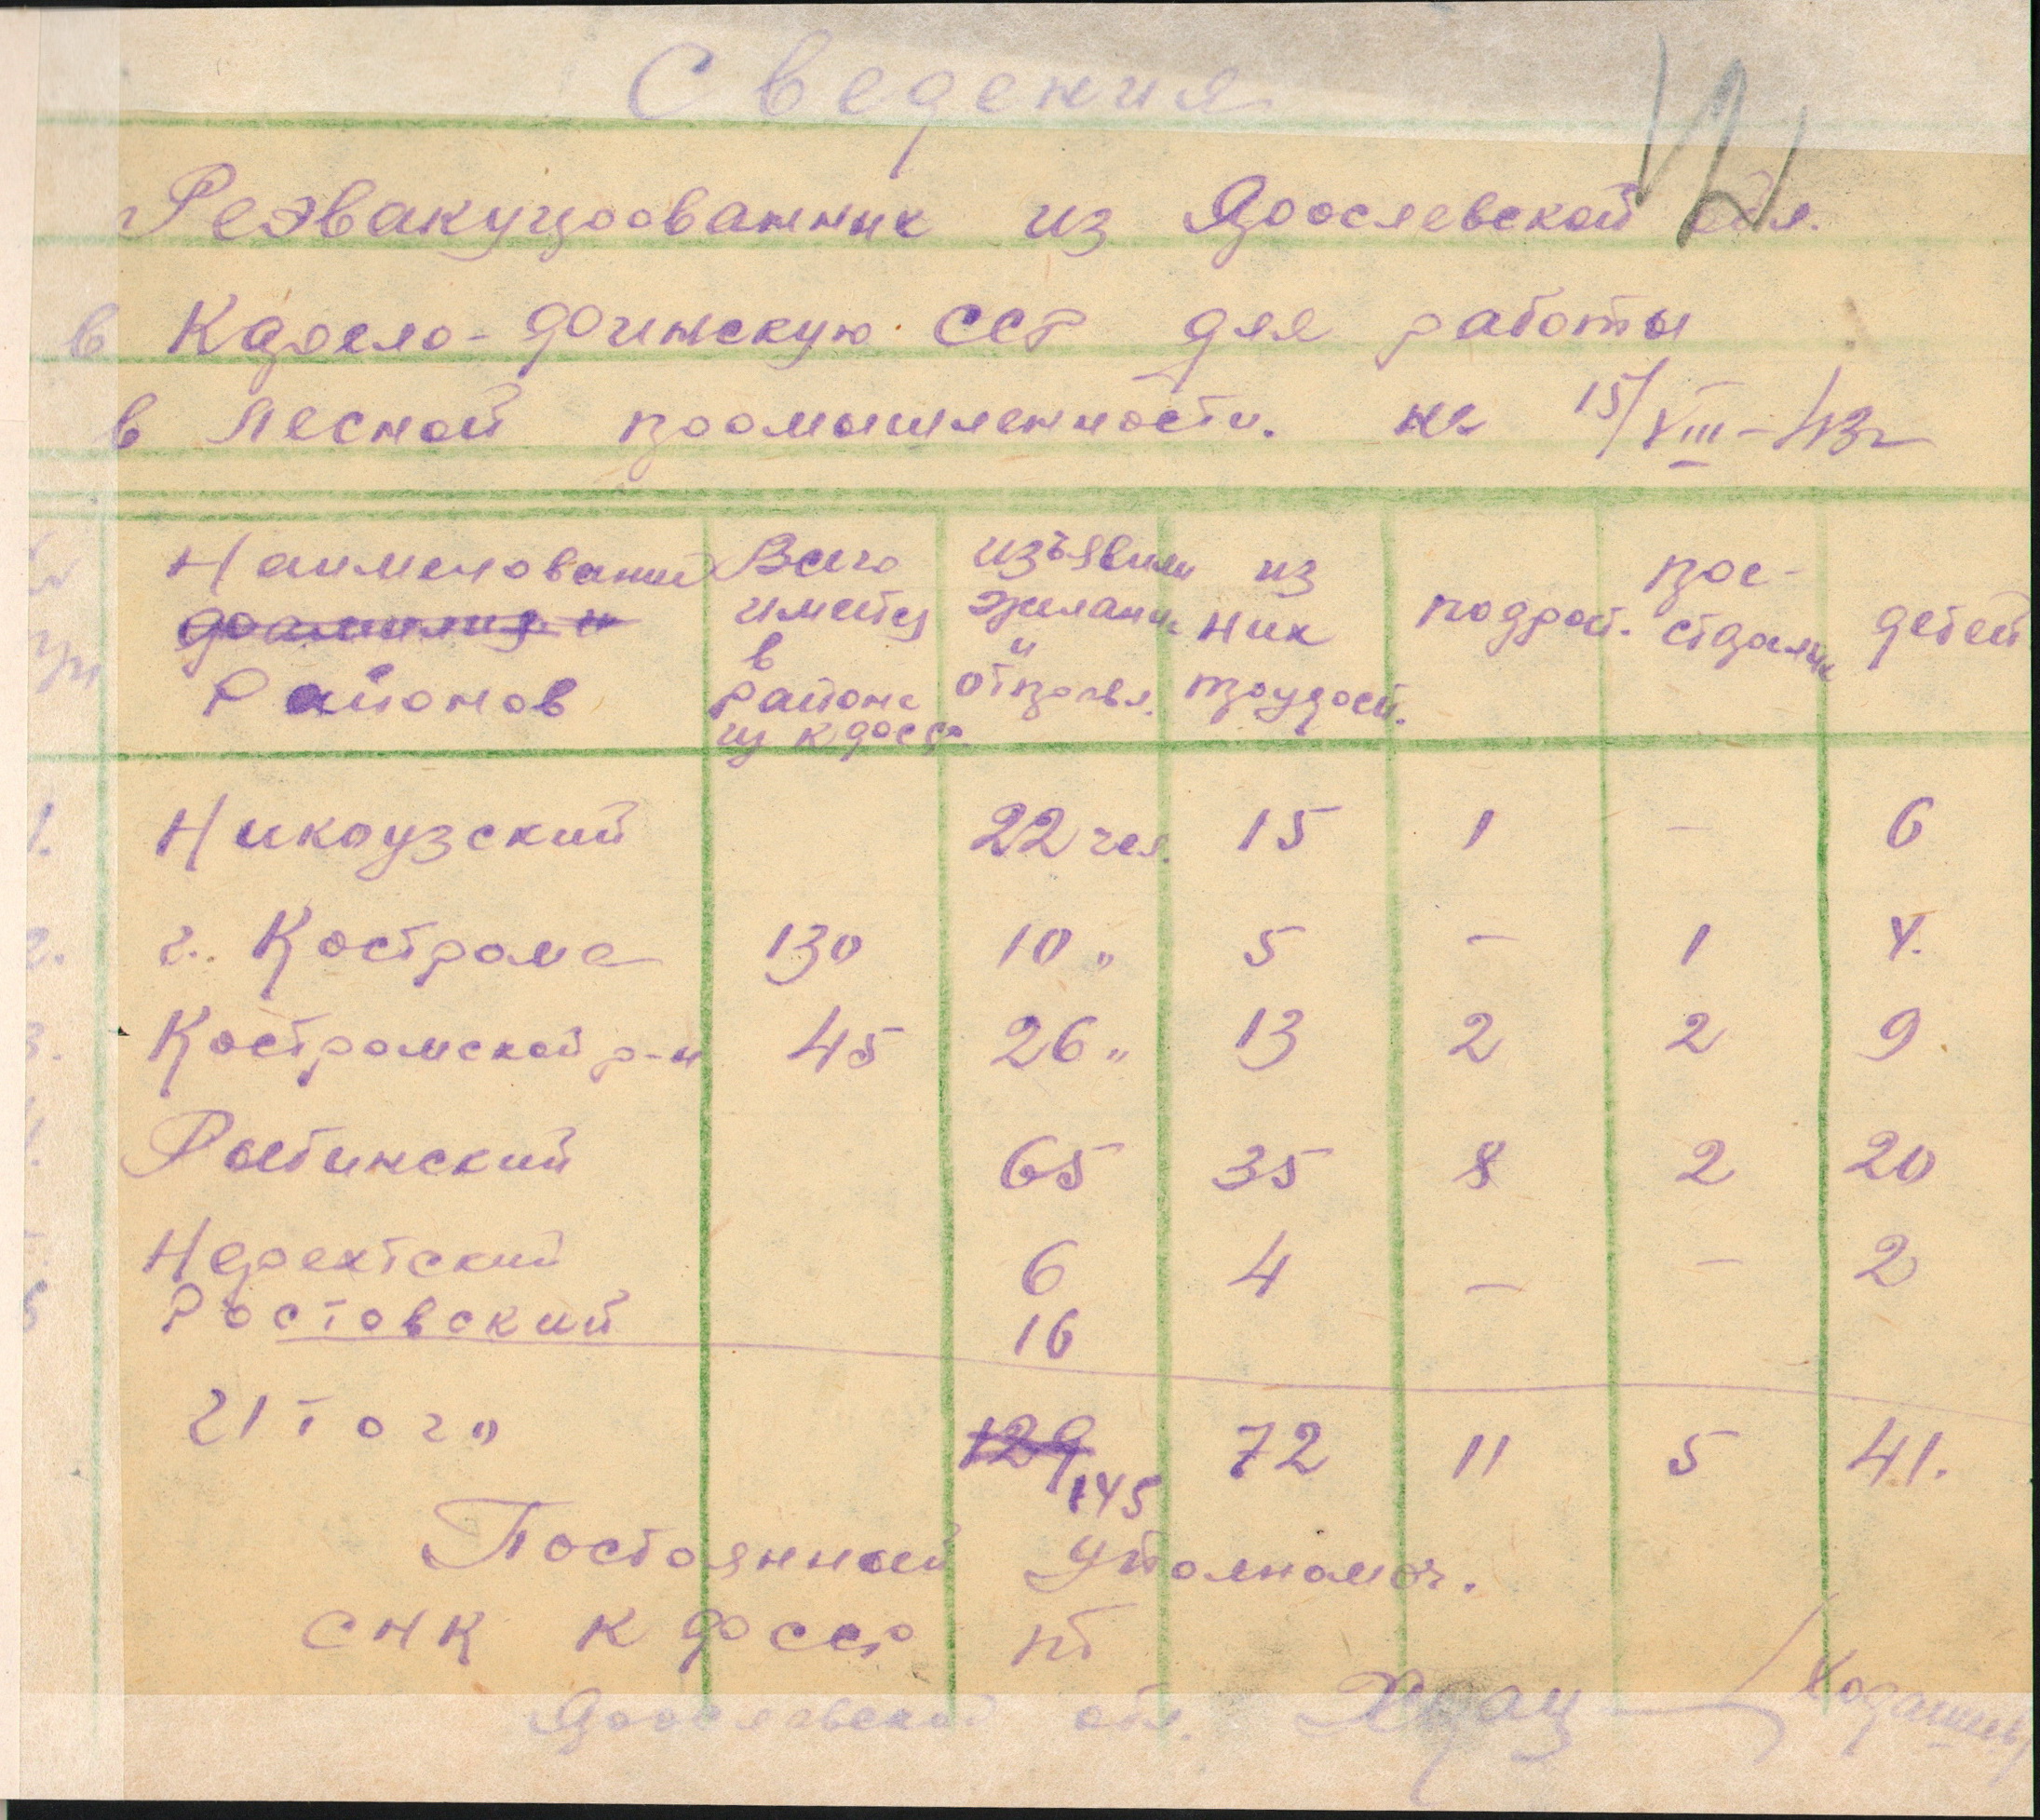 Сведения
Реэвакуированных из Ярославской обл.
в Карело-финскую ССР для работы
в лесной промышленности. на 15/VIII-43г
Наименование Всего имеется в районе из КФССР изъявили желание и отправл. из них трудосп. подрост. престарелых детей
Районов
1. Некоузский 22 чел. 15 1 – 6
2. г. Кострома 130 10 " 5 – 1 4.
3. Костромской р-н 45 26 " 13 2 2 9
4. Рыбинский 65 35 8 2 20
Нерехтский 6 4 – – 2
Ростовский 16
Итого 129 145 72 11 5 41.
Постоянный уполномоч.
СНК КФССР по
Ярославской обл.